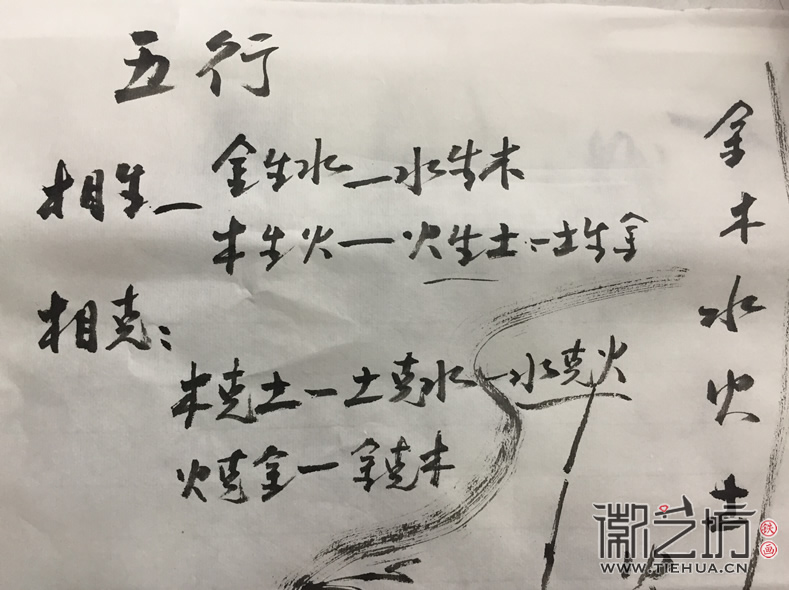 五行
相生—
金生水—水生木
木生火—火生土:土生金
相克:
木克土—土克水—水克火
火克金—金克木
金木水火土
徽之坊
铁画
WWW.TIEHUA.CN